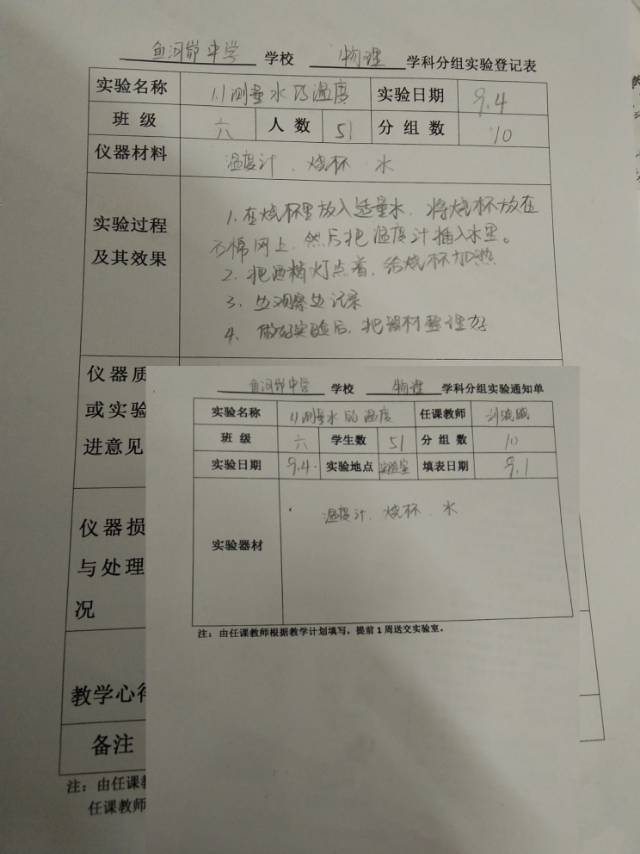 鱼河峁中学 学校 物理 学科分组实验登记表
实验名称 1.1测量水的温度 实验日期 9.4
班 级 六 人 数 51 分 组 数 10
仪器材料 温度计、烧杯 水
实验过程及其效果
1.在烧杯里放入适量水,将烧杯放在
石棉网上,然后把温度计插入水里。
2、把酒精灯点着,给烧杯加热
3、边观察边记录
4、做好实验后,把器材整理好
仪器质
或实验
进意见
仪器损
与处理
况
教学心得
备注
注:由任课教
任课教师
鱼河峁中学 学校 物理 学科分组实验通知单
实验名称 1.1测量水的温度 任课教师
班 级 六 学生数 51 分 组 数 10
实验日期 9.4. 实验地点 实验室 填表日期 9.1
实验器材 温度计、烧杯、水
注:由任课教师根据教学计划填写,提前1周送交实验室。